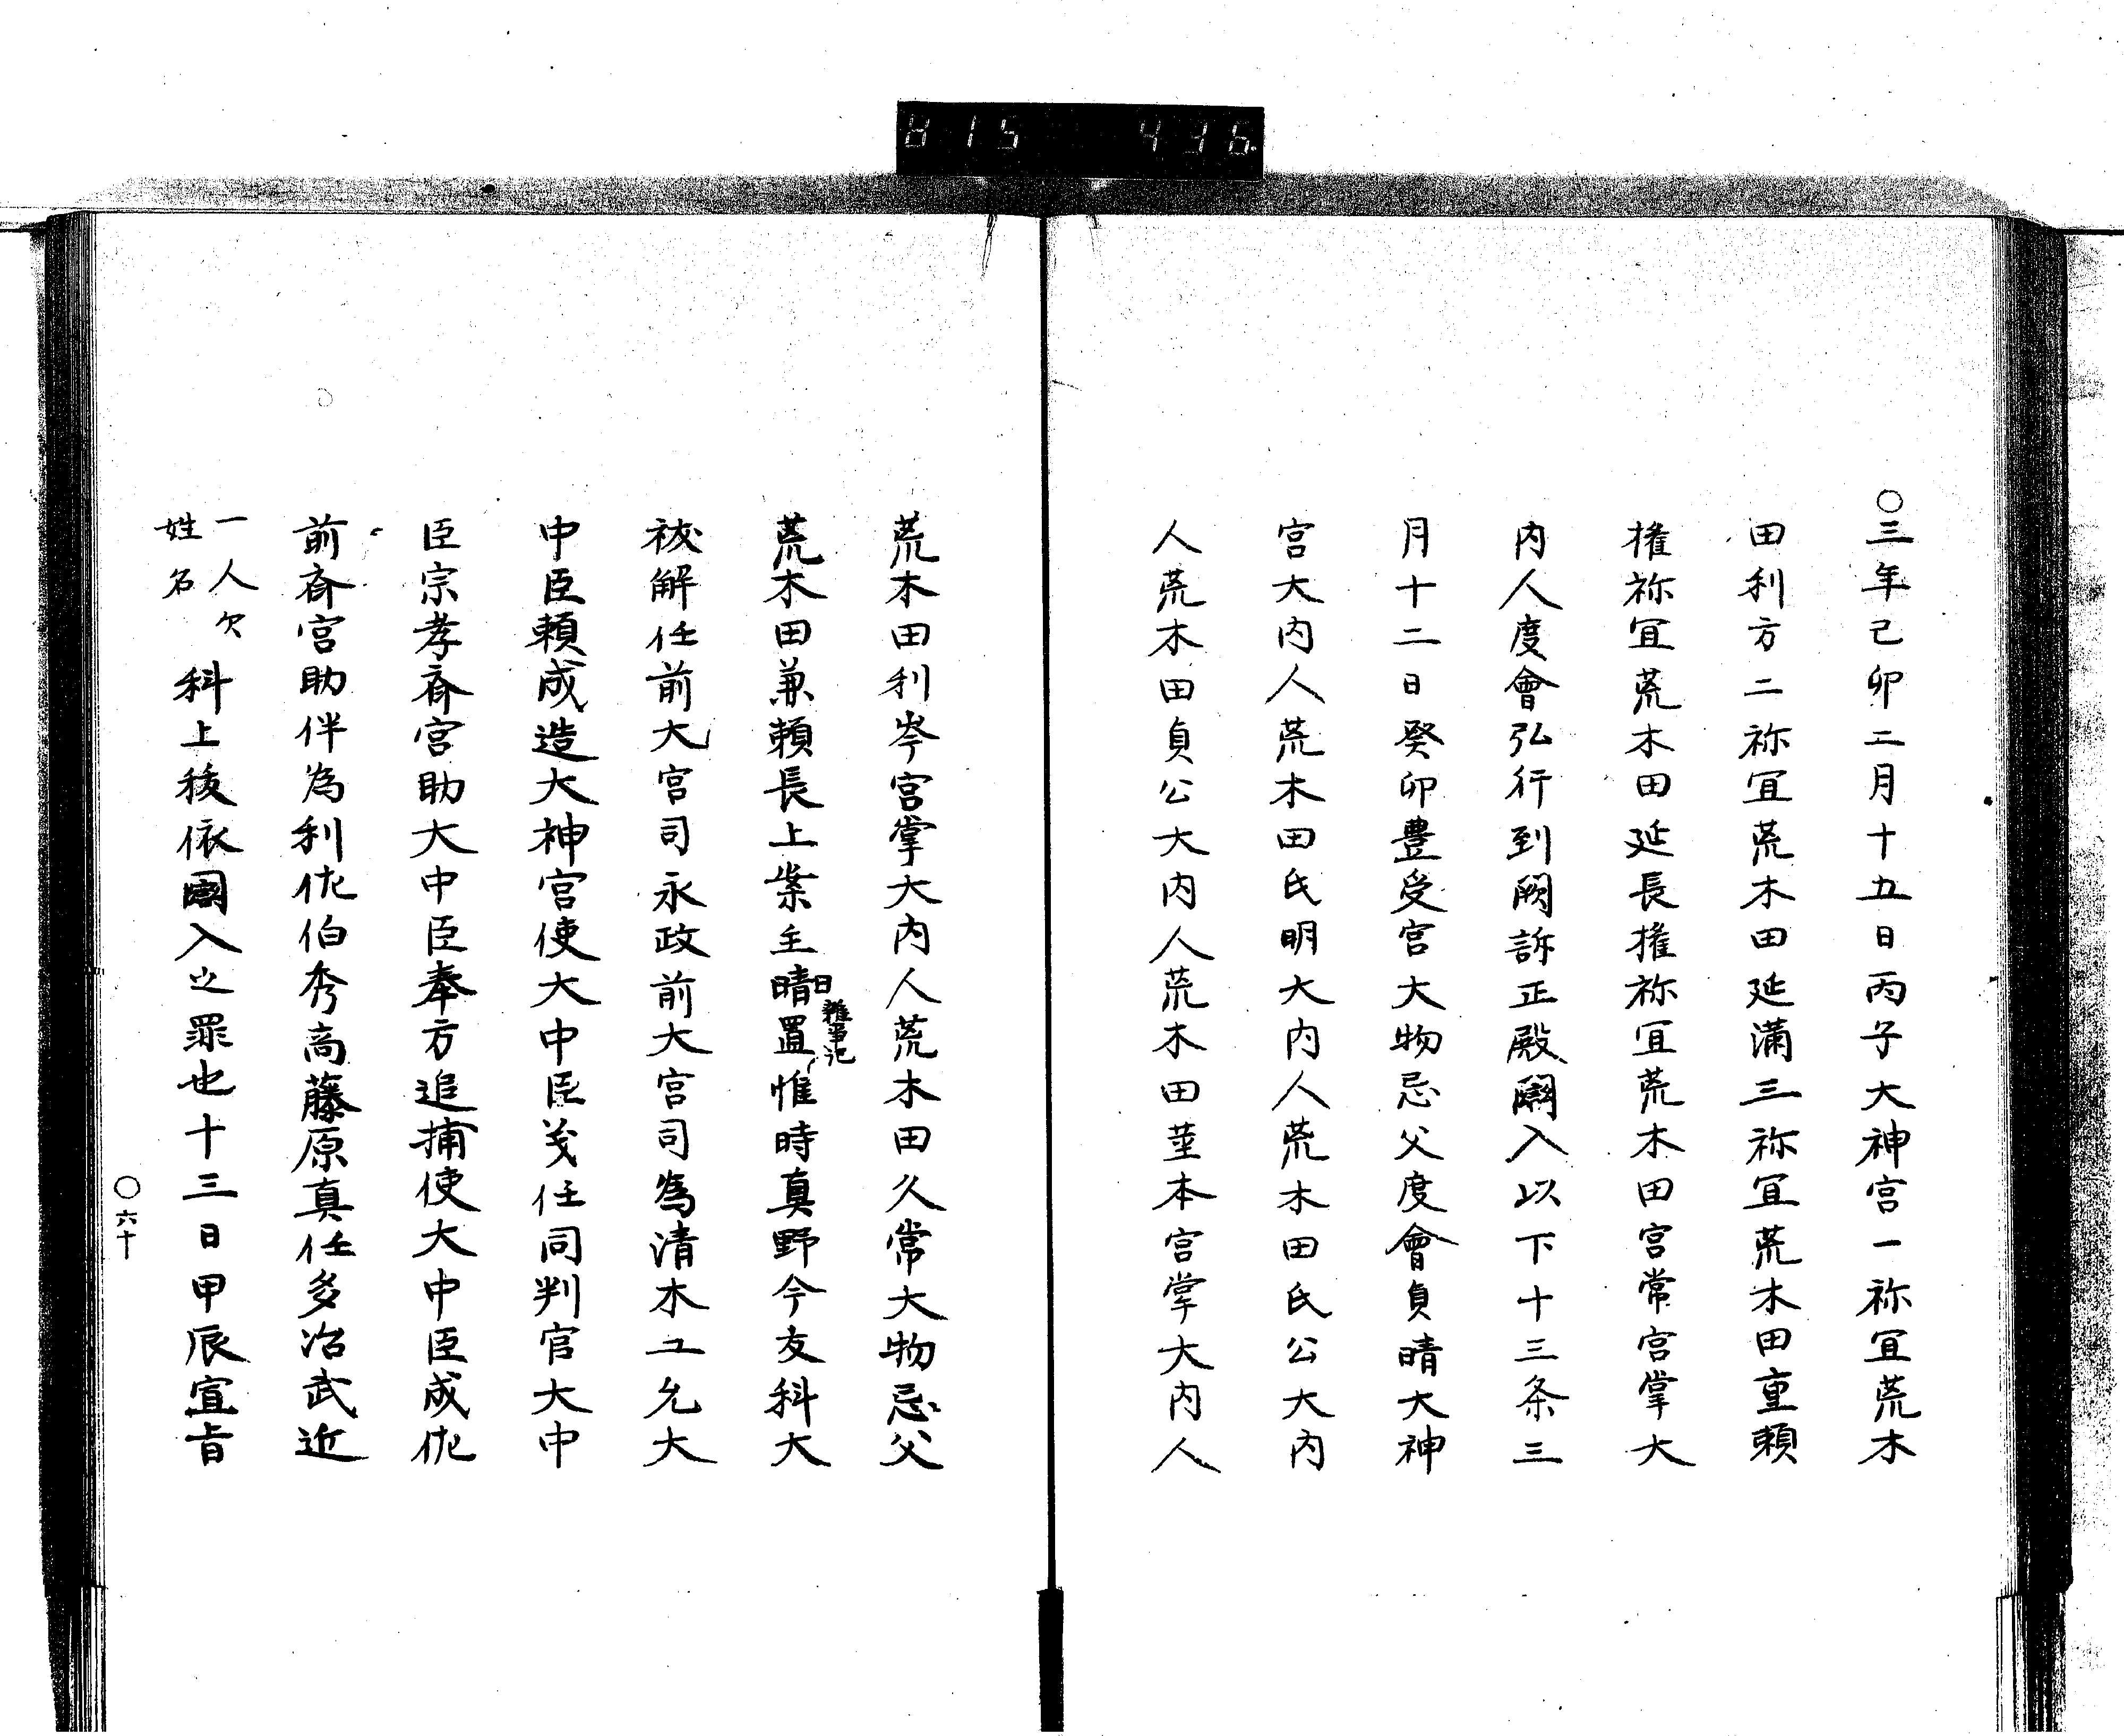 815 436
〇三年己卯二月十五日丙子大神宮一祢宜荒木
田利方二祢宜荒木田延満三祢宜荒木田重頼
権祢宜荒木田延長権祢宜荒木田宮常宮掌大
内人度會弘行到闕訴正殿闌入以下十三条三
月十二日癸卯豊受宮大物忌父度會貞晴大神
宮大内人荒木田氏明大内人荒木田氏公大内
人荒木田貞公大内人荒木田莖本宮掌大内人
荒木田利岑宮掌大内人荒木田久常大物忌父
荒木田兼頼長上案主晴置惟時真野今友科大
日
雜事记
祓解任前大宮司永政前大宮司為清木工允大
中臣頼成造大神宮使大中臣茂任同判官大中
臣宗孝斎宮助大中臣奉方追捕使大中臣成佐
前斎宮助伴為利佐伯秀高藤原真任多治武近
一人欠
姓名
科上祓依闌入之罪也十三日甲辰宣旨
〇六十